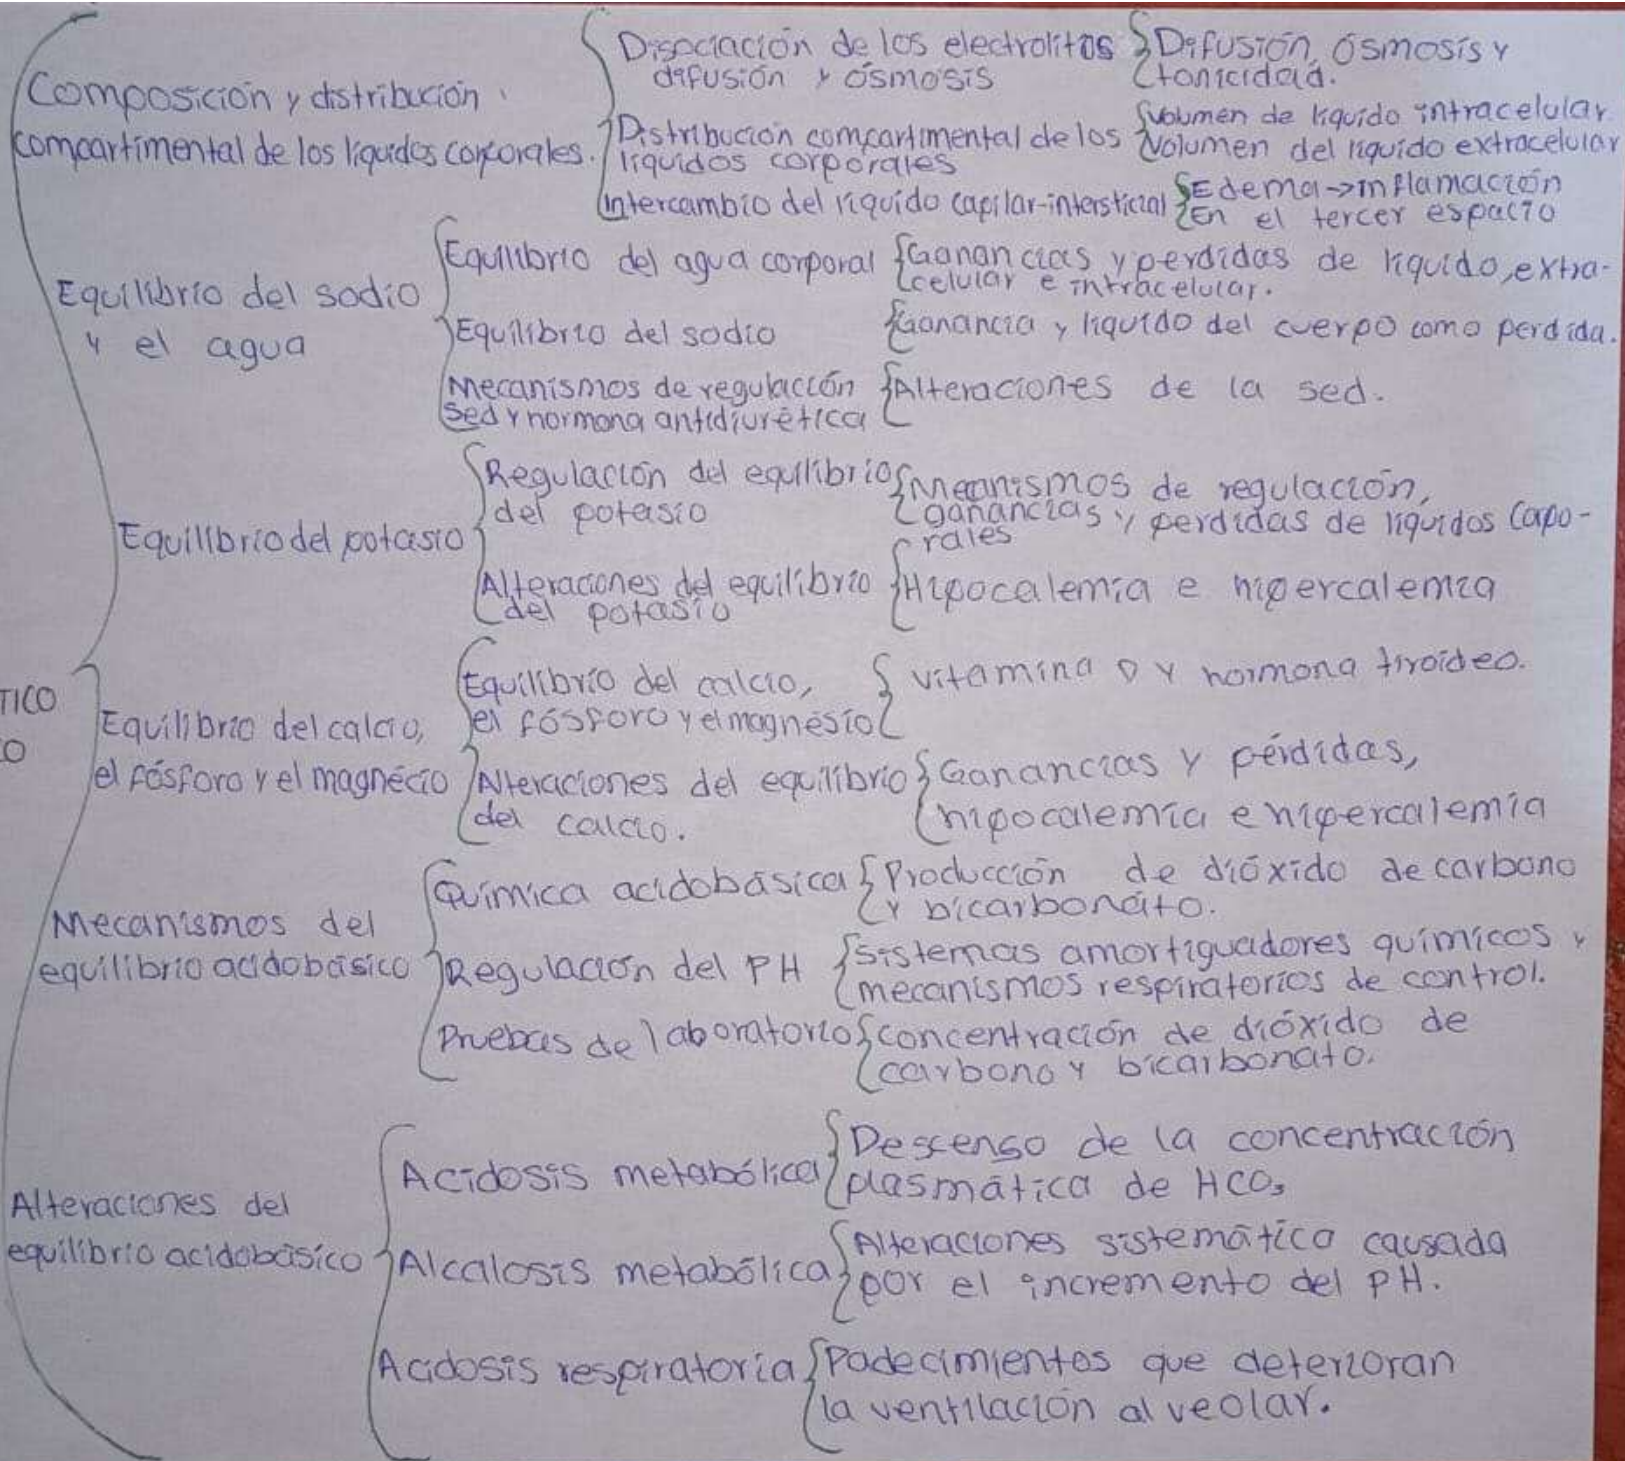 Composición y distribución
compartimental de los líquidos corporales.
Disociación de los electrolitos
difusión y ósmosis
Difusión, ósmosis y
tonicidad.
Distribución compartimental de los
líquidos corporales
Volumen de líquido intracelular
Volumen del líquido extracelular
Intercambio del líquido capilar-intersticial
Edema->inflamación
En el tercer espacio
Equilibrio del sodio
y el agua
Equilibrio del agua corporal
Ganancias y perdidas de líquido, extra-
celular e intracelular.
Equilibrio del sodio
Ganancia y líquido del cuerpo como perdida.
Mecanismos de regulación
sed y hormona antidiurética
Alteraciones de la sed.
Equilibrio del potasio
Regulación del equilibrio
del potasio
Mecanismos de regulación,
ganancias y perdidas de líquidos capo-
rales
Alteraciones del equilibrio
del potasio
Hipocalemia e hipercalemia
TICO
O
Equilibrio del calcio,
el fósforo y el magnécio
Equilibrio del calcio,
el fósforo y el magnésio
vitamina D y hormona tiroideo.
Alteraciones del equilibrio
del calcio.
Ganancias y pérdidas,
hipocalemia e hipercalemia
Mecanismos del
equilibrio acidobásico
Química acidobásica
Producción de dióxido de carbono
y bicarbonato.
Regulación del PH
Sistemas amortiguadores químicos y
mecanismos respiratorios de control.
Pruebas de laboratorio
concentración de dióxido de
carbono y bicarbonato.
Alteraciones del
equilibrio acidobásico
Acidosis metabólica
Descenso de la concentración
plasmática de HCO₃
Alcalosis metabólica
Alteraciones sistemático causada
por el incremento del PH.
Acidosis respiratoria
Padecimientos que deterioran
la ventilación alveolar.